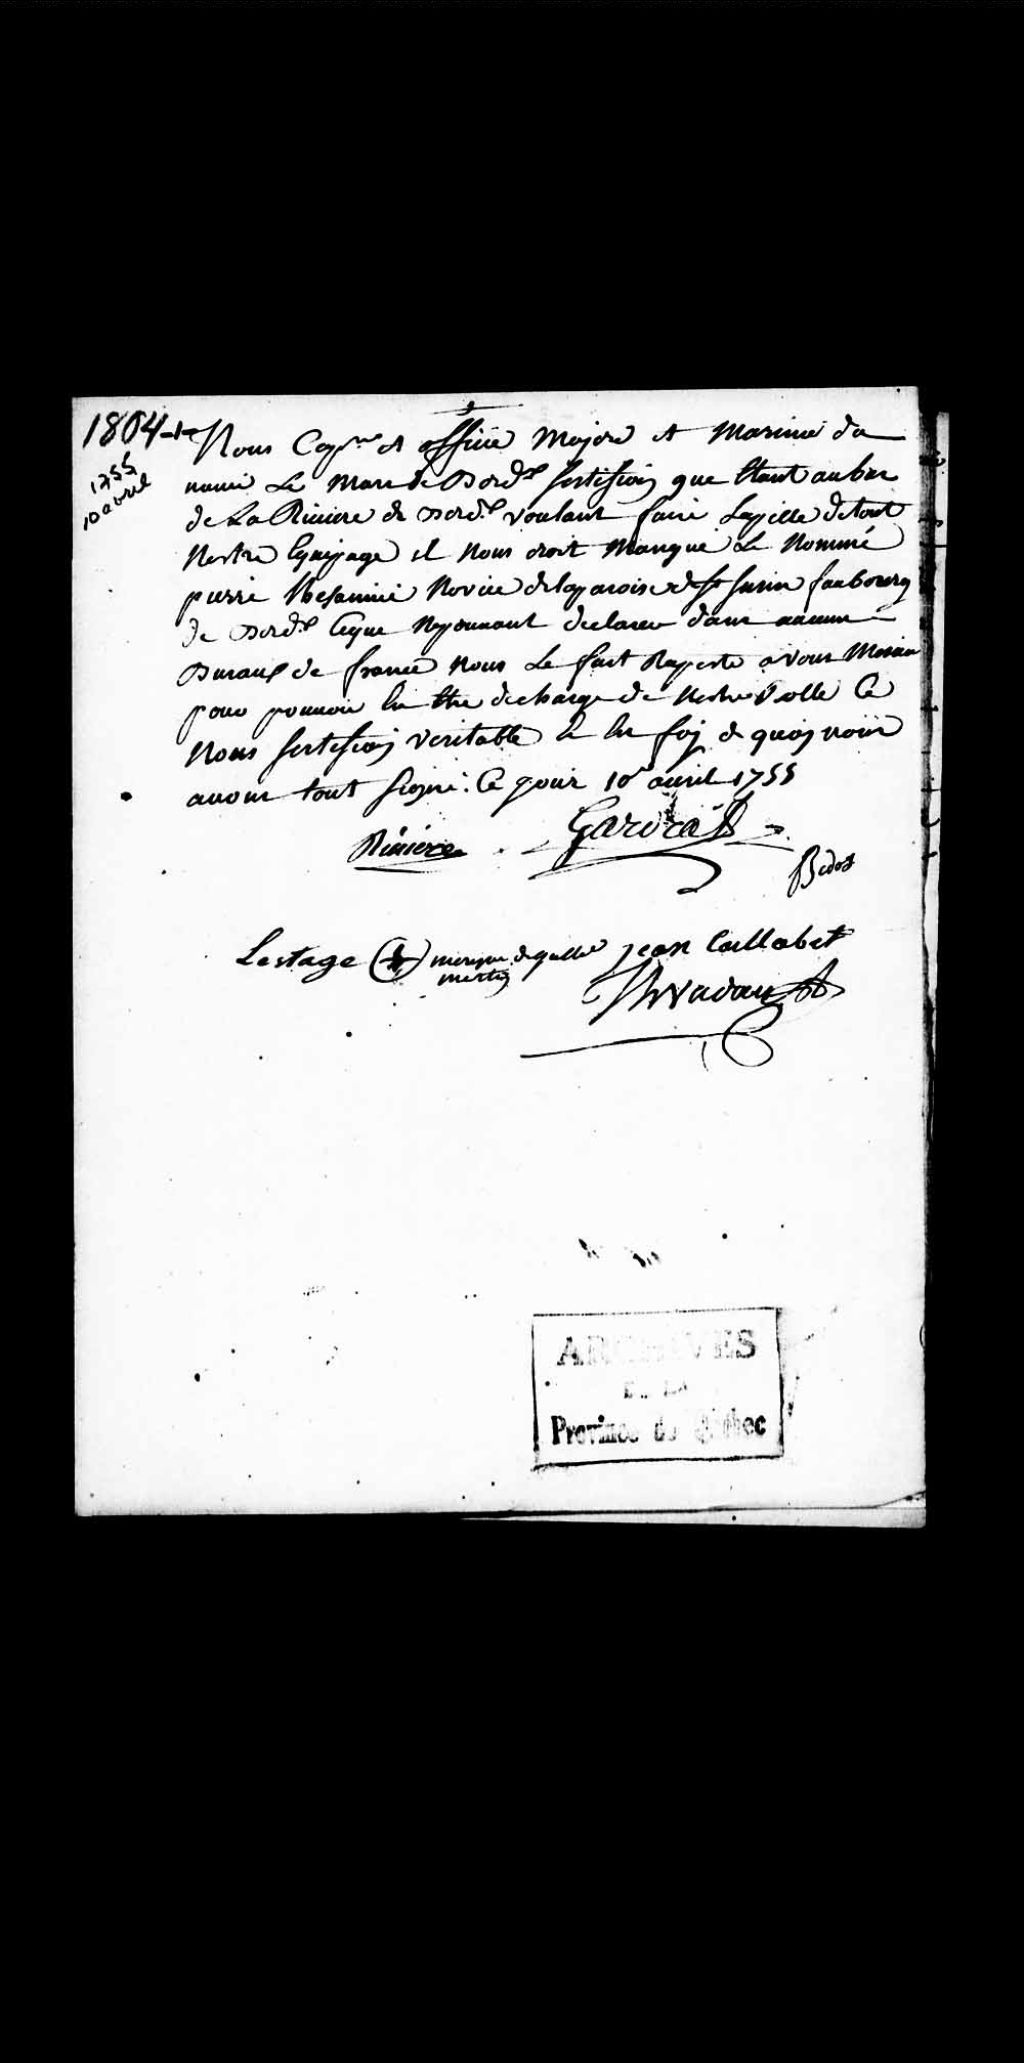 1804-1-
1755
10 avril
Nous Capne et officie Majore et Marinie da
navie Le Marc de Bordx sertifion que Etant au bas
de La Riviere de Bordx voulant faire Lapelle de tout
Nostre Equipage il Nous oroit Manqué Le Nommé
pierre Novice de la paroise de St Surin faubourg
de Bordx Ceque Ne pouvant declarer dans aucun
Buraux de france Nous Le fait Raporte a vous
pour pouvoir En Etre decharge de Nostre Rolle Ce
Nous sertifion veritable En foy de quoy nous
avons tout signé. Ce jour 10e avril 1755
Riviere Garora
Bedos
Lestage marque de
martin
jean Caillabet
ARCHIVES
DE LA
Province de Québec